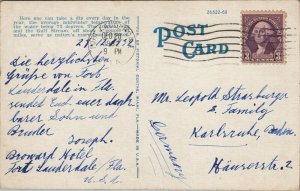 Here one can take a dip every day in the
year, the average midwinter temperature of
the water being 75 degrees. The
and the Gulf Stream, off shore
serve as nature's
26522-60
POST
CARD
28. 12. 1932
Die herzlichsten
Grüße von Fort
Lauderdale in Flo.
sendet Euch euer dankb.
barer Sohn und
Bruder
Joseph.
Broward Hotel
Fort Lauderdale / Fla.
U.S.A.
Mr. Leopold Strasburger
& Family
Karlsruhe, Baden
Häuserstr. 2
Germany
3